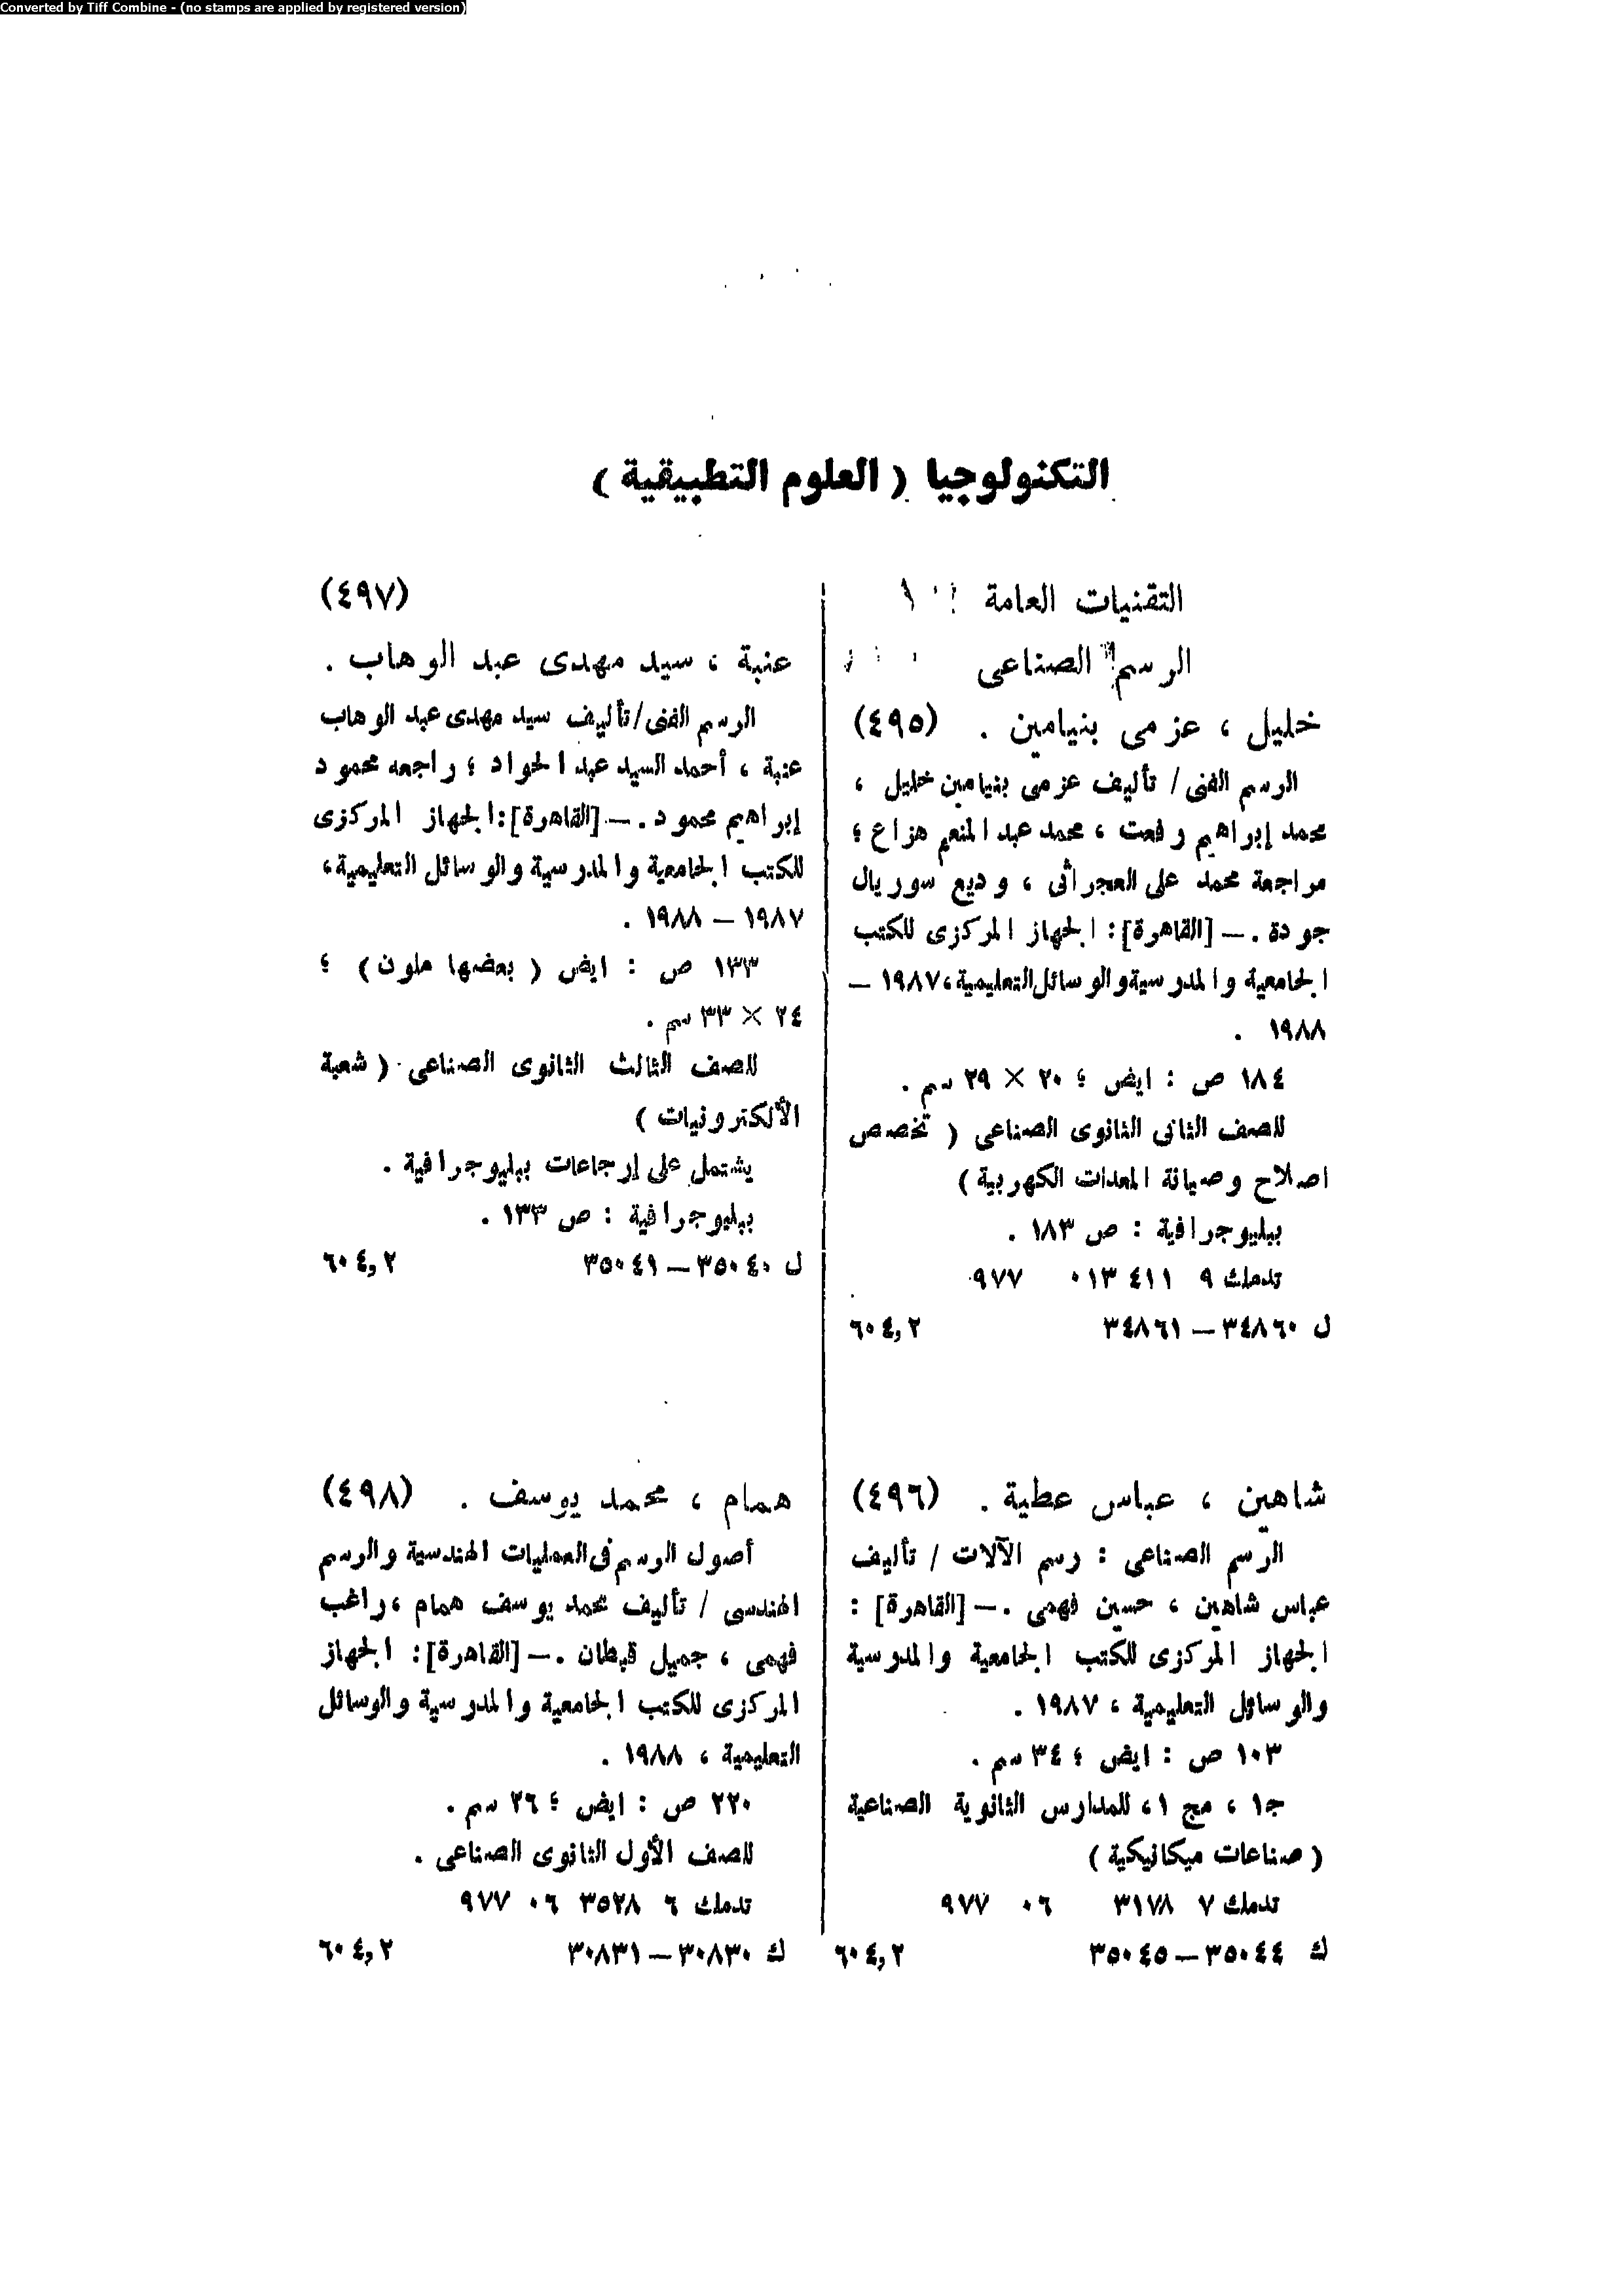 Converted by Tiff Combine - (no stamps are applied by registered version)
التكنولوجيا ( العلوم التطبيقية )
التقنيات العامة
الرسم الصناعى
خليل ، عزمى بنيامين . (٤٩٥)
الرسم الفنى / تأليف عزمى بنيامين خليل ،
محمد إبراهيم رفعت ، محمد عبد المنعم هزاع ؛
مراجعة محمد على العجراتى ، وديع سوريال
جودة . — [القاهرة] : الجهاز المركزى للكتب
الجامعية والمدرسية والوسائل التعليمية ، ١٩٨٧ —
١٩٨٨ .
١٨٤ ص : ايض ؛ ٢٠ × ٢٩ سم .
للصف الثانى الثانوى الصناعى ( تخصص
اصلاح وصيانة المعدات الكهربية )
ببليوجرافية : ص ١٨٣ .
تدمك ٩ ٤١١ ٠١٣ ٩٧٧
ل ٣٤٨٦٠ — ٣٤٨٦١ ٦٠٤,٢
شاهين ، عباس عطية . (٤٩٦)
الرسم الصناعى : رسم الآلات / تأليف
عباس شاهين ، حسين فهمى . — [القاهرة] :
الجهاز المركزى للكتب الجامعية والمدرسية
والوسائل التعليمية ، ١٩٨٧ .
١٠٣ ص : ايض ؛ ٣٤ سم .
جـ١ ، مج ١ ، للمدارس الثانوية الصناعية
( صناعات ميكانيكية )
تدمك ٧ ٣١٧٨ ٠٦ ٩٧٧
ك ٣٥٠٤٤ — ٣٥٠٤٥ ٦٠٤,٢
(٤٩٧)
عنبة ، سيد مهدى عبد الوهاب .
الرسم الفنى / تأليف سيد مهدى عبد الوهاب
عنبة ، أحمد السيد عبد الجواد ؛ راجعه محمود
إبراهيم محمود . — [القاهرة] : الجهاز المركزى
للكتب الجامعية والمدرسية والوسائل التعليمية ،
١٩٨٧ — ١٩٨٨ .
١٣٣ ص : ايض ( بعضها ملون ) ؛
٢٤ × ٣٣ سم .
للصف الثالث الثانوى الصناعى ( شعبة
الألكترونيات )
يشتمل على إرجاعات ببليوجرافية .
ببليوجرافية : ص ١٣٣ .
ل ٣٥٠٤٠ — ٣٥٠٤١ ٦٠٤,٢
همام ، محمد يوسف . (٤٩٨)
أصول الرسم فى العمليات الهندسية والرسم
الهندسى / تأليف محمد يوسف همام ، راغب
فهمى ، جميل قبطان . — [القاهرة] : الجهاز
المركزى للكتب الجامعية والمدرسية والوسائل
التعليمية ، ١٩٨٨ .
٢٢٠ ص : ايض ؛ ٢٦ سم .
للصف الأول الثانوى الصناعى .
تدمك ٦ ٣٥٢٨ ٠٦ ٩٧٧
ك ٣٠٨٣٠ — ٣٠٨٣١ ٦٠٤,٢